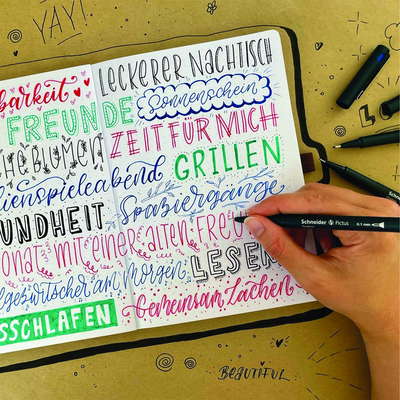 YAY!
LECKERER NACHTISCH
barkeit
FREUNDE
Sonnenschein
ZEIT FÜR MICH
CHE BLUMEN
GRILLEN
ilienspieleabend
Spaziergänge
UNDHEIT
onat mit einer alten Freu
LESEN
lgezwitscher am Morgen
Gemeinsam Lachen
SSCHLAFEN
Schneider Pictus 0.1 mm
BEAUTIFUL